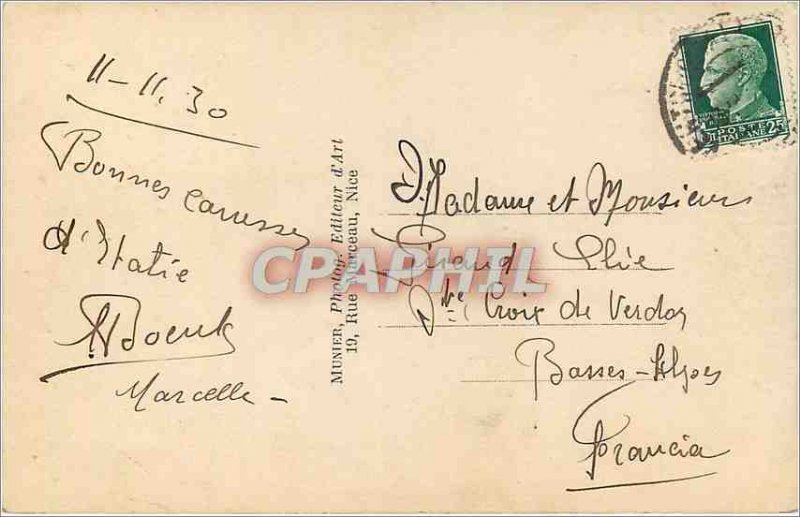 11-11.30
Bonnes caresses
d'Italie
Marcelle -
MUNIER, Photog. Editeur d'Art
19, Rue Marceau, Nice
POSTE
ITALIANE 25
Madame et Monsieur
Giraud Elie
Ste Croix de Verdon
Basses-Alpes
Francia
CPAPHIL